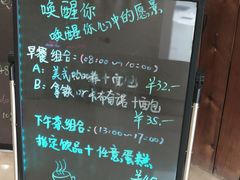 唤醒你
唤醒你心中的愿景
早餐组合:(08:00~10:00)
A: 美式 + 面包 ¥32.-
B: 拿铁/卡布奇诺+面包
¥35.-
下午茶组合:(13:00~17:00)
指定饮品+任意蛋糕